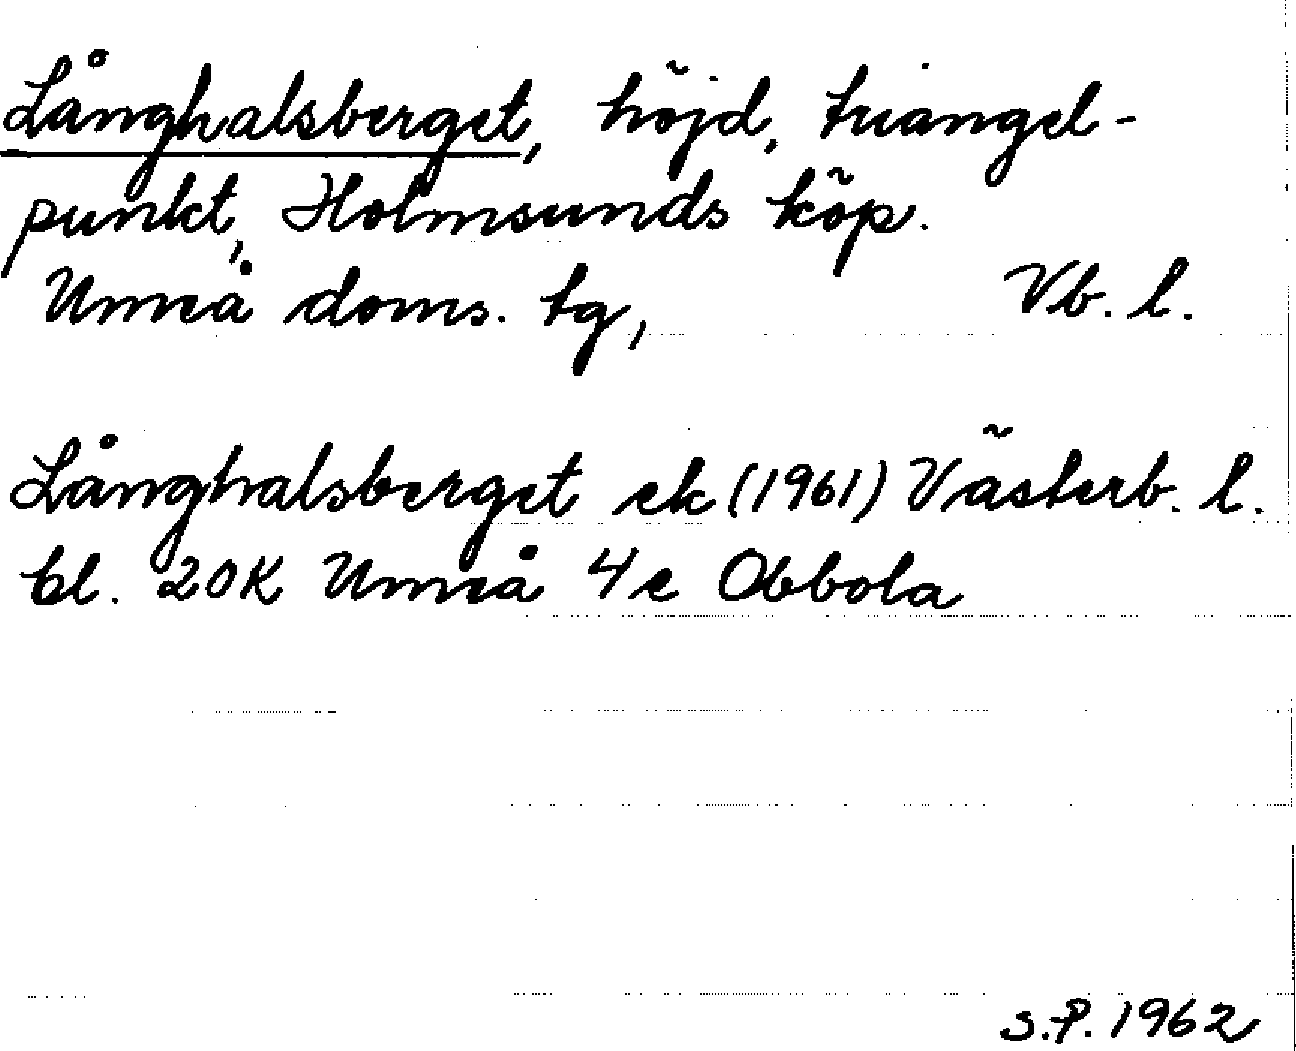 Långhalsberget, höjd, triangel-
punkt, Holmsunds köp.
Umeå doms. tg, Vb. l.
Långhalsberget ek (1961) Västerb. l.
bl. 20K Umeå 4e Obbola
S.P. 1962